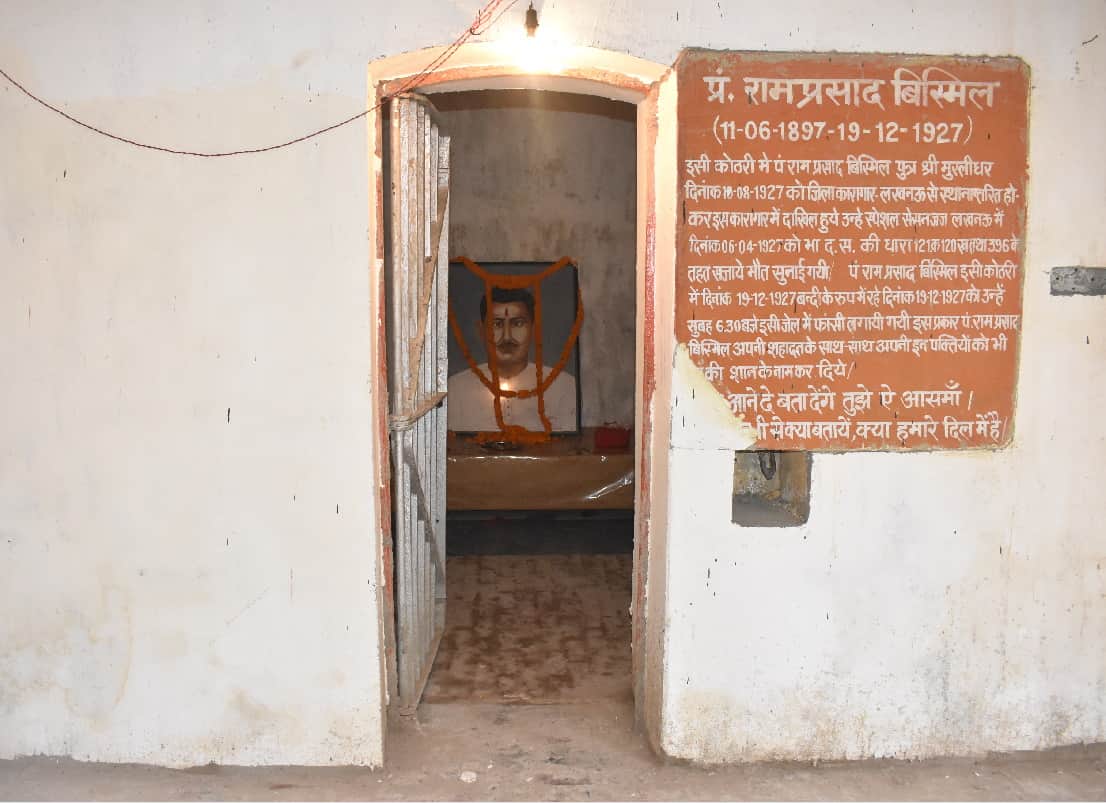 पं. रामप्रसाद बिस्मिल
(11-06-1897-19-12-1927)
इसी कोठरी मे पं राम प्रसाद बिस्मिल पुत्र श्री मुरलीधर
दिनांक 18-08-1927 को जिला कारागार-लखनऊ से स्थानान्तरित हो-
कर इस कारागार में दाखिल हुये उन्हे स्पेशल सेसनजज लखनऊ में
दिनांक 06-04-1927 को भा द. स. की धारा 121क 120ख तथा 396 के
तहत सजाये मौत सुनाई गयी। पं राम प्रसाद बिस्मिल इसी कोठरी
में दिनांक 19-12-1927 बन्दी के रुप में रहे दिनांक 19-12-1927 को उन्हें
सुबह 6.30 बजे इसी जेल में फांसी लगायी गयी इस प्रकार पं. राम प्रसाद
बिस्मिल अपनी शहादत के साथ-साथ अपनी इन पक्तियों को भी
की शान के नाम कर दिये।
आने दे बता देंगे तुझे ऐ आसमाँ।
से क्या बतायें, क्या हमारे दिल में है